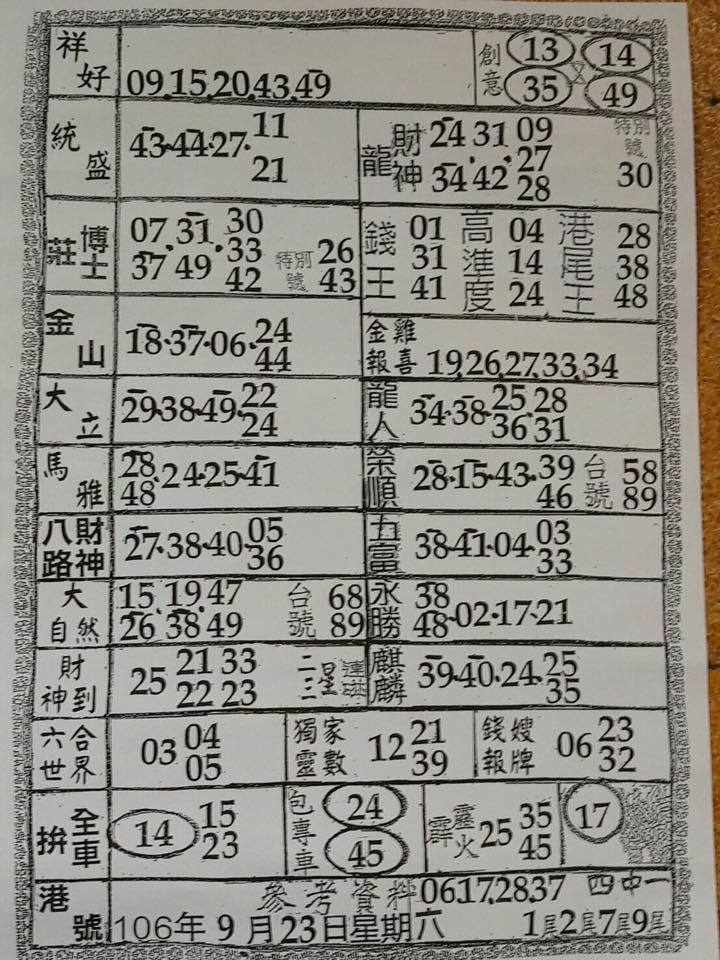 祥好 09.15.20.43.49 創意 13 14 35 49
統盛 43.44.27. 11 21
龍財神 24 31 09 27 34 42 28 特別號 30
莊博士 07 31 30 33 37 49 42 特別號 26 43
錢王 01 31 41 高進度 04 14 24 港尾王 28 38 48
金山 18.37.06. 24 44
金雞報喜 19.26.27.33.34
大立 29.38.49. 22 24
龍人 34.38. 25.28 36 31
馬雅 28 48 .24.25.41
榮順 28.15.43. 39 46 台號 58 89
八路財神 27.38.40. 05 36
五富 38.41.04. 03 33
大自然 15 19 47 26 38 49 台號 68 89
永勝 38 48 .02.17.21
財神到 25 21 33 22 23 二三星連碰
麒麟 39.40.24. 25 35
六合世界 03 04 05
獨家靈數 12 21 39
錢嫂報牌 06 23 32
拚全車 14 15 23
包專車 24 45
霹靂火 25 35 45
17
港號 參考資料 06.17.28.37 四中一
106年9月23日星期六 1尾2尾7尾9尾